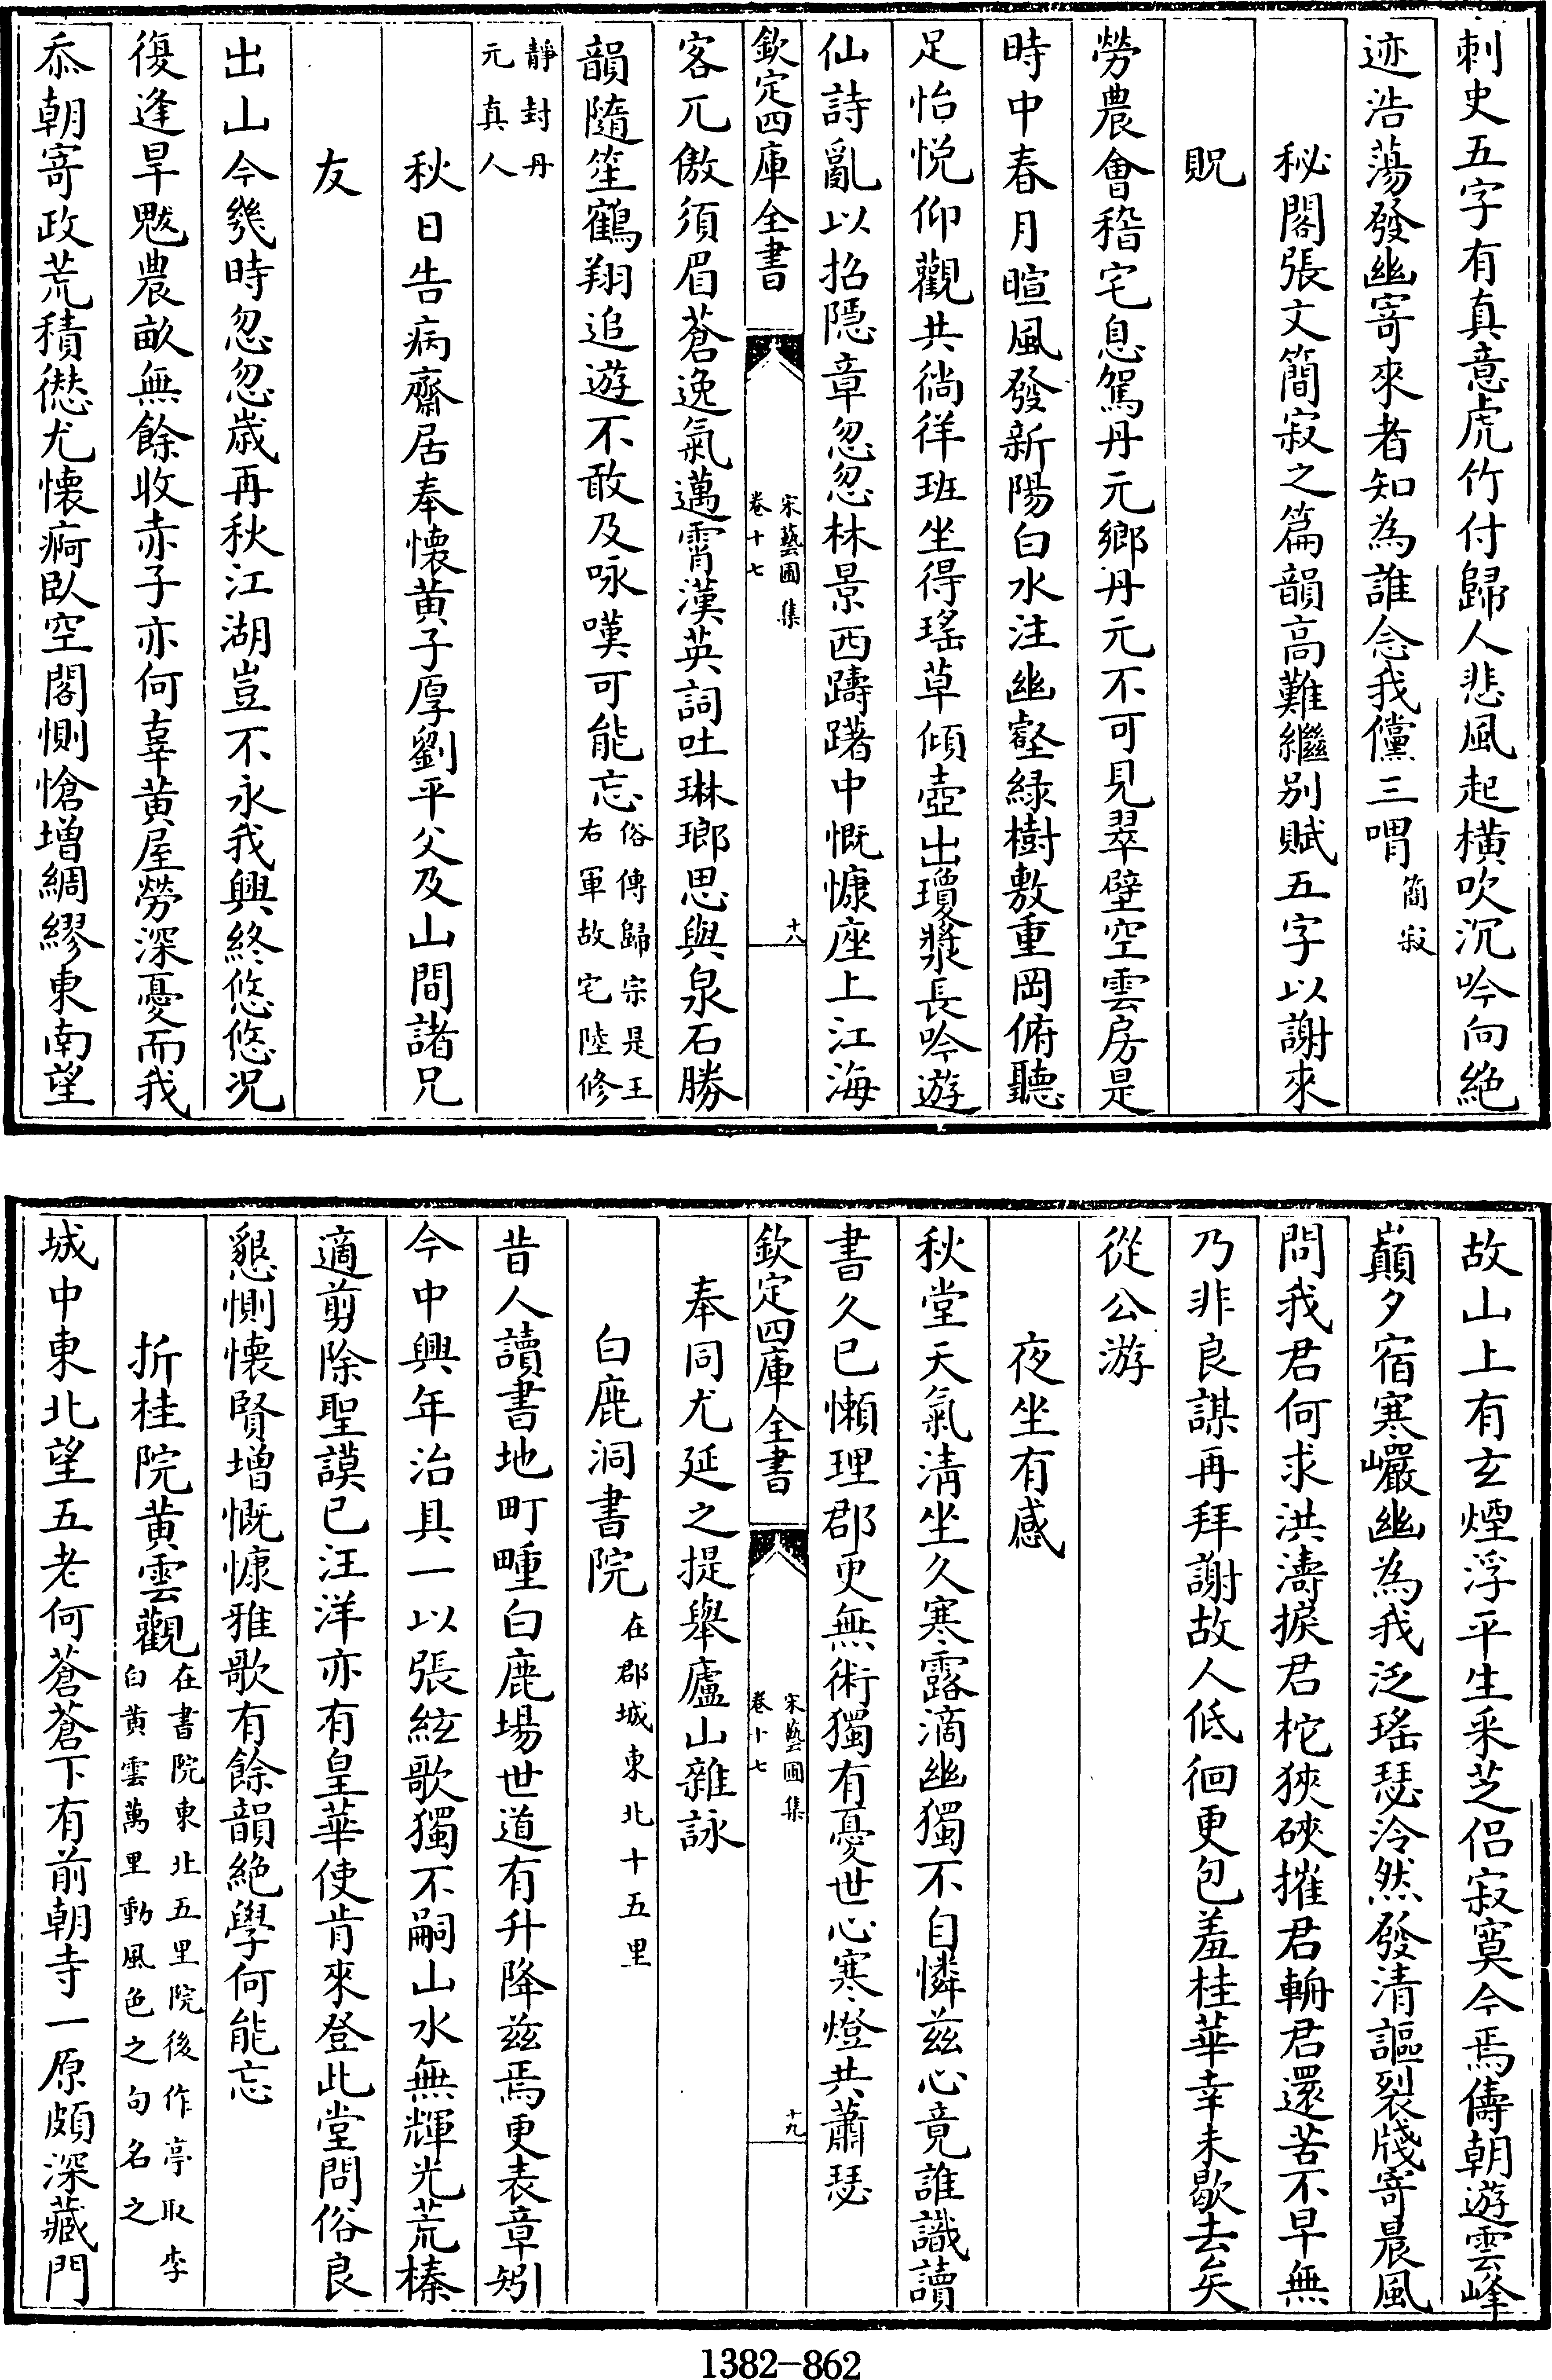 刺史五字有真意虎竹付歸人悲風起橫吹沉吟向絶
迹浩蕩發幽寄來者知為誰念我儻三喟簡寂
秘閣張文簡寂之篇韻高難繼别賦五字以謝來
貺
勞農會稽宅息駕丹元鄉丹元不可見翠壁空雲房是
時中春月暄風發新陽白水注幽壑緑樹敷重岡俯聽
足怡悅仰觀共徜徉班坐得瑤草傾壺出瓊漿長吟遊
仙詩亂以招隱章忽忽林景西躊躇中慨慷座上江海
欽定四庫全書
宋藝圃集
卷十七
十八
客兀傲須眉蒼逸氣邁霄漢英詞吐琳瑯思與泉石勝
韻隨笙鶴翔追遊不敢及咏嘆可能忘俗傳歸宗是王
右軍故宅陸修
靜封丹
元真人
秋日告病齋居奉懷黄子厚劉平父及山間諸兄
友
出山今幾時忽忽歲再秋江湖豈不永我興終悠悠況
復逢旱魃農畝無餘收赤子亦何辜黄屋勞深憂而我
忝朝寄政荒積愆尤懷痾臥空閣惻愴增綢繆東南望
故山上有玄煙浮平生采芝侣寂寞今焉儔朝遊雲峰
巔夕宿寒巖幽為我泛瑤瑟泠然發清謳裂牋寄晨風
問我君何求洪濤捩君柁狹硤摧君輈君還苦不早無
乃非良謀再拜謝故人低徊更包羞桂華幸未歇去矣
從公游
夜坐有感
秋堂天氣清坐久寒露滴幽獨不自憐兹心竟誰識讀
書久已懶理郡更無術獨有憂世心寒燈共蕭瑟
欽定四庫全書
宋藝圃集
卷十七
十九
奉同尤延之提舉廬山雜詠
白鹿洞書院在郡城東北十五里
昔人讀書地町畽白鹿場世道有升降兹焉更表章矧
今中興年治具一以張絃歌獨不嗣山水無輝光荒榛
適剪除聖謨已汪洋亦有皇華使肯來登此堂問俗良
懇惻懷賢增慨慷雅歌有餘韻絶學何能忘
折桂院黄雲觀在書院東北五里院後作亭取李
白黄雲萬里動風色之句名之
城中東北望五老何蒼蒼下有前朝寺一原頗深藏門
1382-862